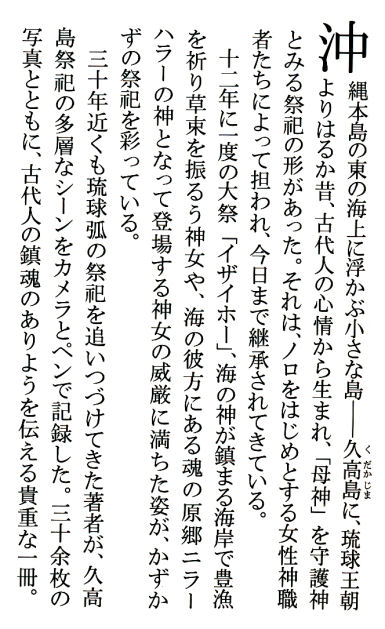 沖縄本島の東の海上に浮かぶ小さな島――久高島に、琉球王朝
よりはるか昔、古代人の心情から生まれ、「母神」を守護神
とみる祭祀の形があった。それは、ノロをはじめとする女性神職
者たちによって担われ、今日まで継承されてきている。
十二年に一度の大祭「イザイホー」、海の神が鎮まる海岸で豊漁
を祈り草束を振るう神女や、海の彼方にある魂の原郷ニラー
ハラーの神となって登場する神女の威厳に満ちた姿が、かずか
ずの祭祀を彩っている。
三十年近くも琉球弧の祭祀を追いつづけてきた著者が、久高
島祭祀の多層なシーンをカメラとペンで記録した。三十余枚の
写真とともに、古代人の鎮魂のありようを伝える貴重な一冊。
くだかじま